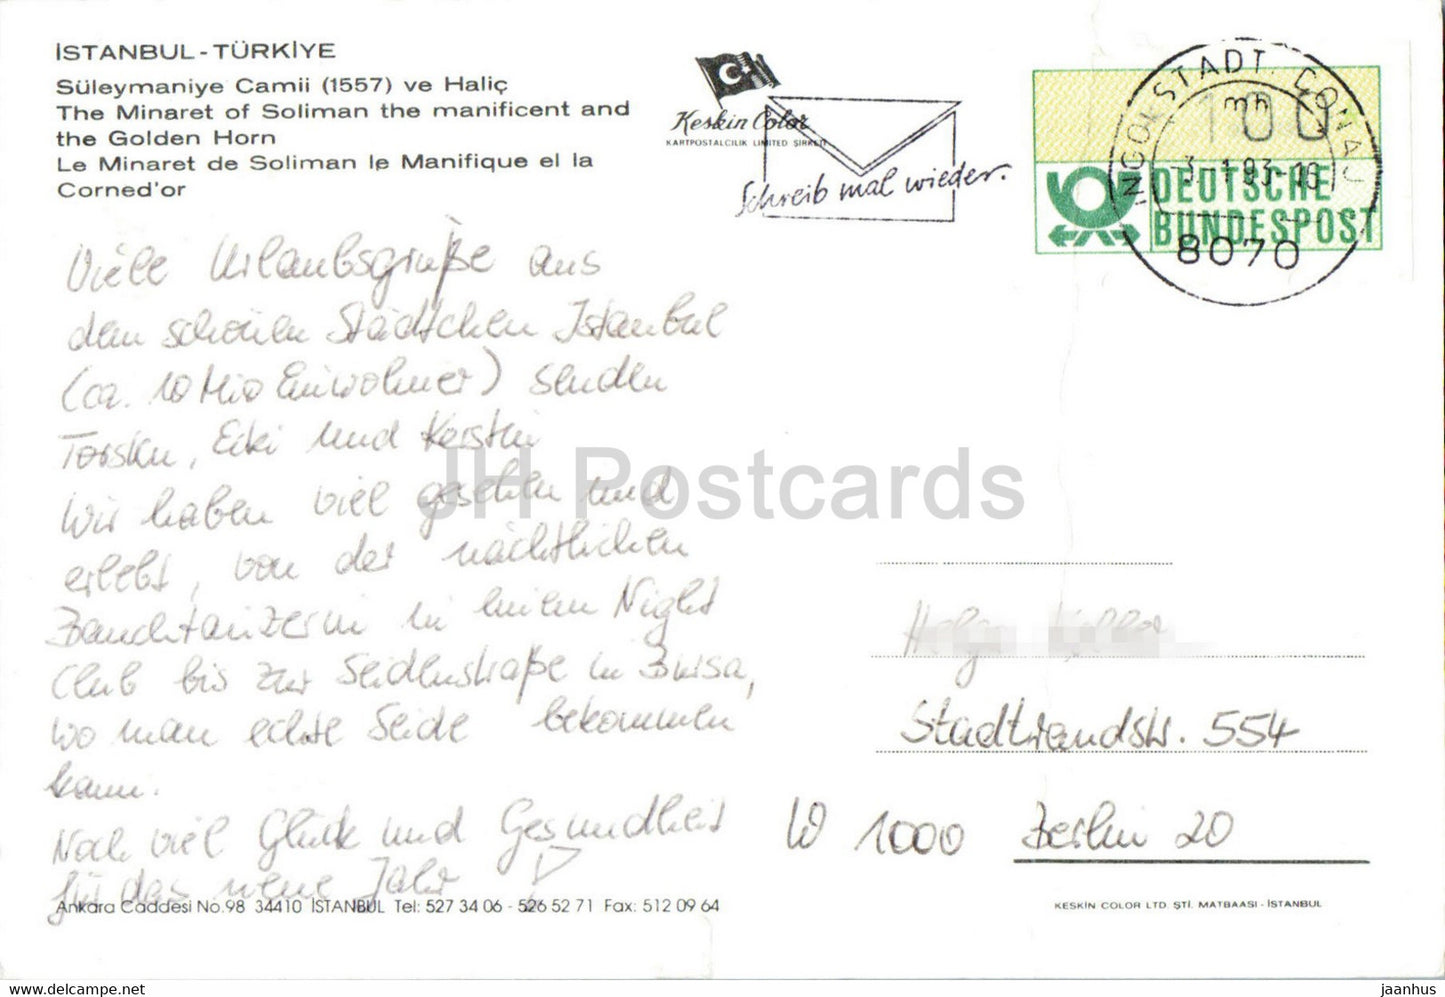 İSTANBUL - TÜRKİYE
Süleymaniye Camii (1557) ve Haliç
The Minaret of Soliman the manificent and
the Golden Horn
Le Minaret de Soliman le Manifique el la
Corned'or
Keskin Color
KARTPOSTALCILIK LIMITED ŞİRKETİ
Schreib mal wieder.
INGOLSTADT, DONAU
mh
-3.-1.93-16
8070
100
DEUTSCHE
BUNDESPOST
Viele Urlaubsgrüße aus
dem schönen Städtchen Istanbul
(ca. 10 Mio Einwohner) senden
Torsten, Ecki und Kerstin
Wir haben viel gesehen und
erlebt, von der nächtlichen
Bauchtänzerin in einem Night
Club bis zur Seidenstraße in Bursa,
wo man echte Seide bekommen
kann.
Noch viel Glück und Gesundheit
für das neue Jahr
Helga
Stadtrandstr. 554
W 1000 Berlin 20
Ankara Caddesi No.98 34410 İSTANBUL Tel: 527 34 06 - 526 52 71 Fax: 512 09 64
KESKİN COLOR LTD. ŞTİ. MATBAASI - İSTANBUL
JH Postcards
www.delcampe.net
jaanhus